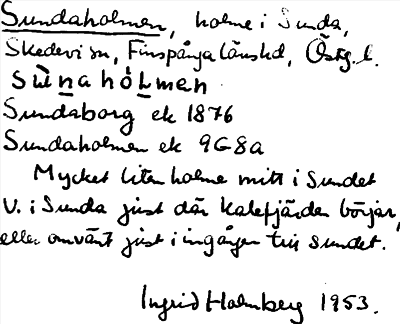 Sundaholmen, holme i Sunda,
Skedevi sn, Finspånga länshd, Östg. l.
sùnahòlmen
Sundaborg ek 1876
Sundaholmen ek 9G8a
Mycket liten holme mitt i Sundet
V. i Sunda just där Kalefjärden börjar,
eller omvänt just i ingången till sundet.
Ingrid Holmberg 1953.